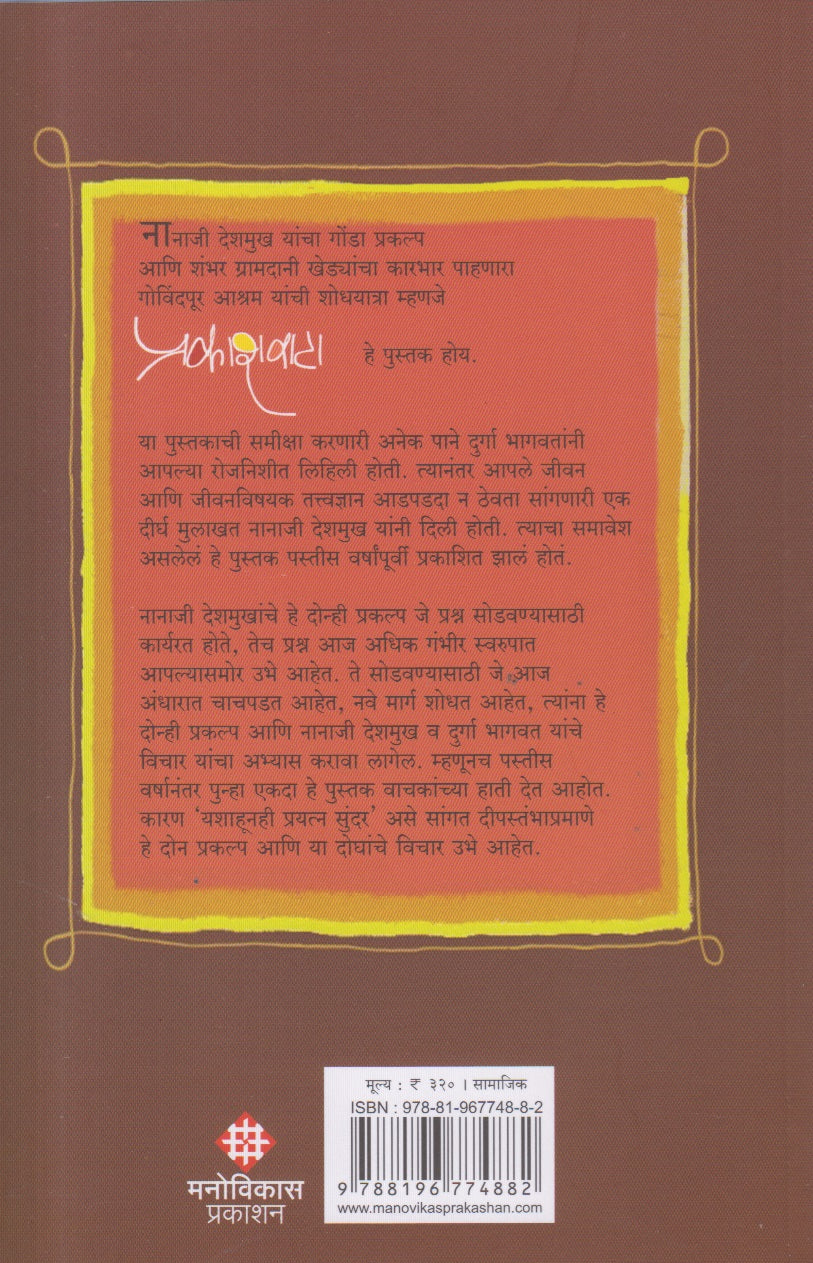 नानाजी देशमुख यांचा गोंडा प्रकल्प
आणि शंभर ग्रामदानी खेड्यांचा कारभार पाहणारा
गोविंदपूर आश्रम यांची शोधयात्रा म्हणजे
प्रकाशवाटा हे पुस्तक होय.
या पुस्तकाची समीक्षा करणारी अनेक पाने दुर्गा भागवतांनी
आपल्या रोजनिशीत लिहिली होती. त्यानंतर आपले जीवन
आणि जीवनविषयक तत्त्वज्ञान आडपडदा न ठेवता सांगणारी एक
दीर्घ मुलाखत नानाजी देशमुख यांनी दिली होती. त्याचा समावेश
असलेलं हे पुस्तक पस्तीस वर्षांपूर्वी प्रकाशित झालं होतं.
नानाजी देशमुखांचे हे दोन्ही प्रकल्प जे प्रश्न सोडवण्यासाठी
कार्यरत होते, तेच प्रश्न आज अधिक गंभीर स्वरुपात
आपल्यासमोर उभे आहेत. ते सोडवण्यासाठी जे आज
अंधारात चाचपडत आहेत, नवे मार्ग शोधत आहेत, त्यांना हे
दोन्ही प्रकल्प आणि नानाजी देशमुख व दुर्गा भागवत यांचे
विचार यांचा अभ्यास करावा लागेल. म्हणूनच पस्तीस
वर्षानंतर पुन्हा एकदा हे पुस्तक वाचकांच्या हाती देत आहोत.
कारण ‘यशाहूनही प्रयत्न सुंदर’ असे सांगत दीपस्तंभाप्रमाणे
हे दोन प्रकल्प आणि या दोघांचे विचार उभे आहेत.
मूल्य : ₹ ३२० । सामाजिक
ISBN : 978-81-967748-8-2
9 788196 774882
www.manovikasprakashan.com
मनोविकास
प्रकाशन